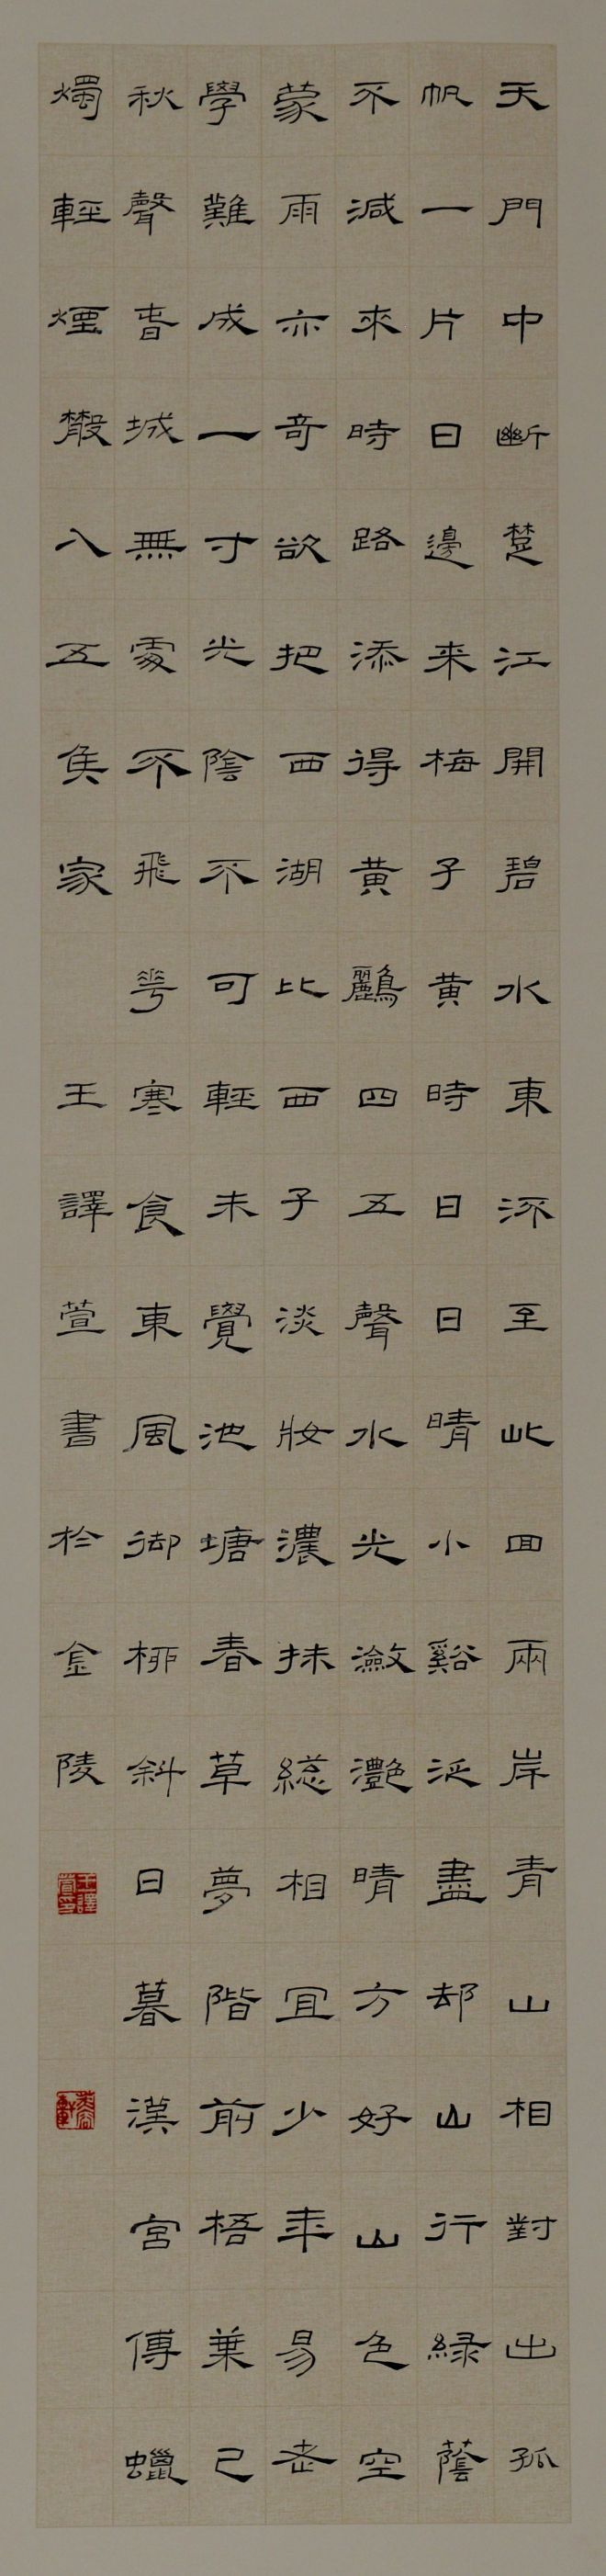 天門中斷楚江開碧水東流至此回兩岸青山相對出孤
帆一片日邊来梅子黃時日日晴小谿泛盡却山行緑蔭
不減來時路添得黃鸝四五聲水光瀲灩晴方好山色空
蒙雨亦奇欲把西湖比西子淡妝濃抹總相宜少年易老
學難成一寸光陰不可輕未覺池塘春草夢階前梧葉已
秋聲春城無處不飛花寒食東風御柳斜日暮漢宮傳蠟
燭輕煙散入五侯家 王譯萱書於金陵
王譯萱印